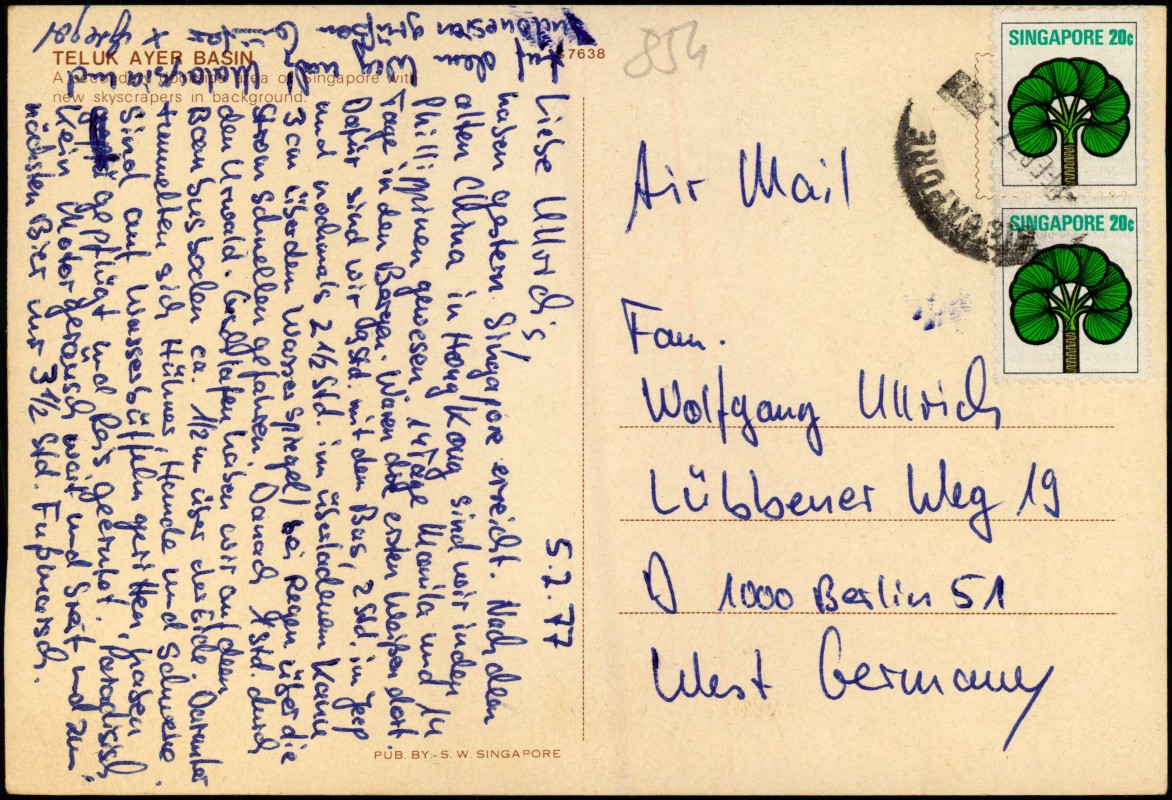 TELUK AYER BASIN
A secondary dockside area of Singapore with
new skyscrapers in background.
7638
854
SINGAPORE 20c
SINGAPORE 20c
SINGAPORE
Air Mail
Fam.
Wolfgang Ullrich
Lübbener Weg 19
D 1000 Berlin 51
West Germany
5.2.77
Liebe Ullrich's,
haben gestern Singapore erreicht. Nach dem
alten China in Hong Kong sind wir in den
Phillippinen gewesen. 14 Tage Manila und 14
Tage in den Bergen. Waren die ersten Weißen dort.
Dafür sind wir 9 Std. mit dem Bus, 2 Std. im Jeep
und nochmals 2 1/2 Std. im überladenem Kanu
3 cm über dem Wasserspiegel bei Regen über die
Stromschnellen gefahren. Danach Std. durch
den Urwald. Geschlafen haben wir auf dem
Bambusboden ca. 1/2 m über der Erde. Darunter
tummelten sich Hühner, Hunde und Schweine.
Sind auf Wasserbüffeln geritten, haben
gepflügt und Reis geerntet. Paradisisch
Kein Motorgeräusch weit und breit und zum
nächsten Bier nur 3 1/2 Std. Fußmarsch.
Auf dem
Indonesien
Malaysia
PUB. BY:- S. W. SINGAPORE